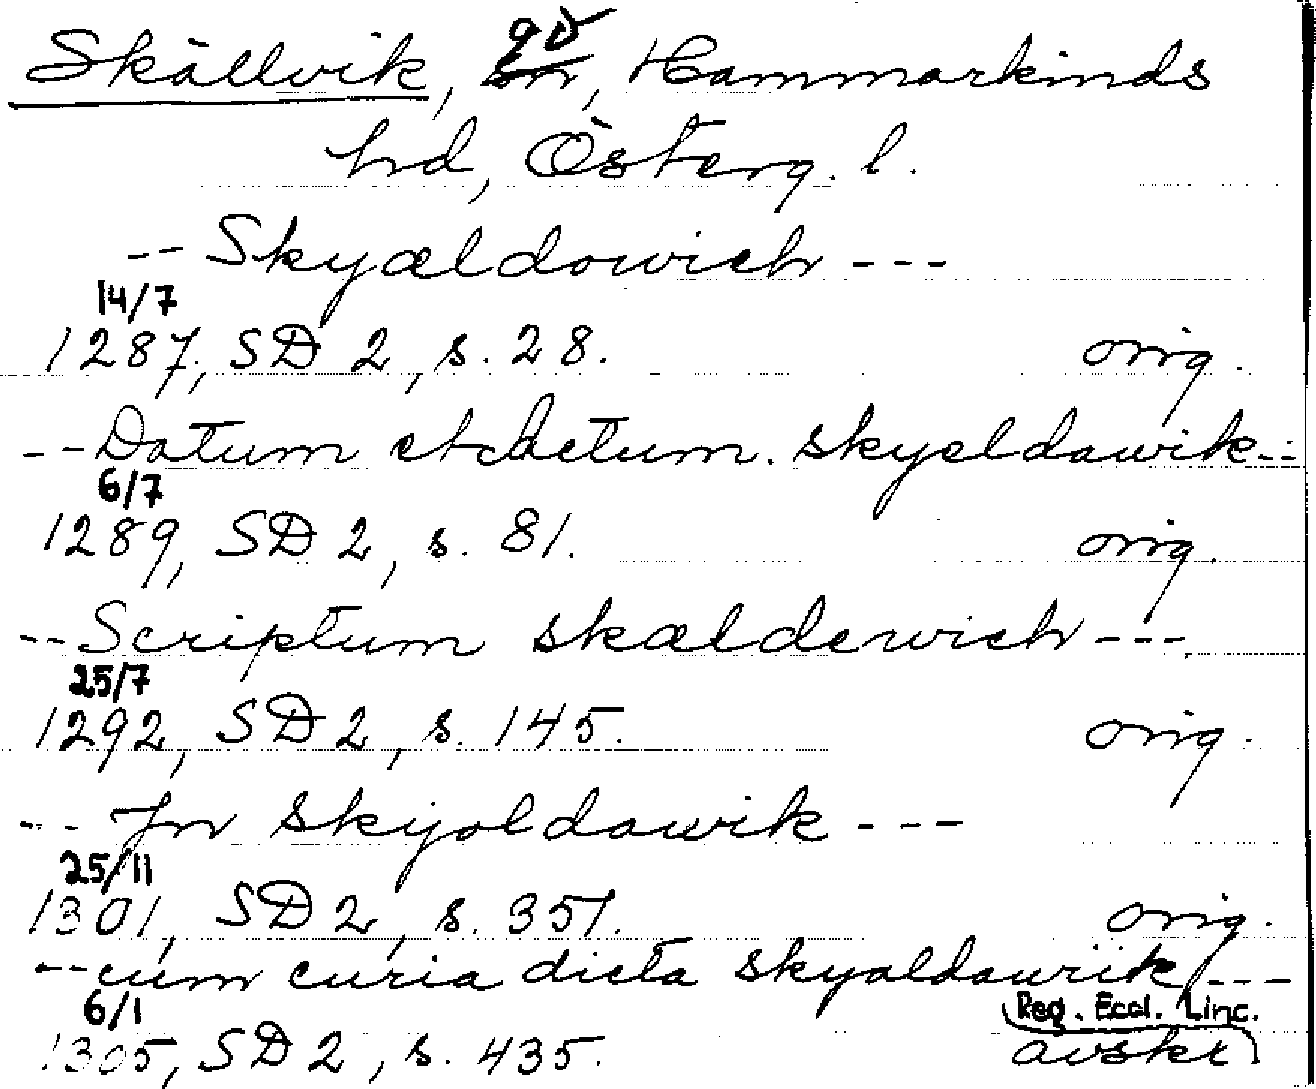 Skällvik, gd, Hammarkinds
hd, Österg. l.
-- Skyældowich ---
14/7
1287, SD 2, s. 28. orig.
-- Datum et actum. skyældawik --
6/7
1289, SD 2, s. 81. orig.
-- Scriptum skælderwich ---
25/7
1292, SD 2, s. 145. orig.
-- Jn skyoldawik ---
25/11
1301, SD 2, s. 351. orig.
-- cum curia dicta skyaldawiik ---
6/1 Reg. Eccl. Linc.
1305, SD 2, s. 435. avskr